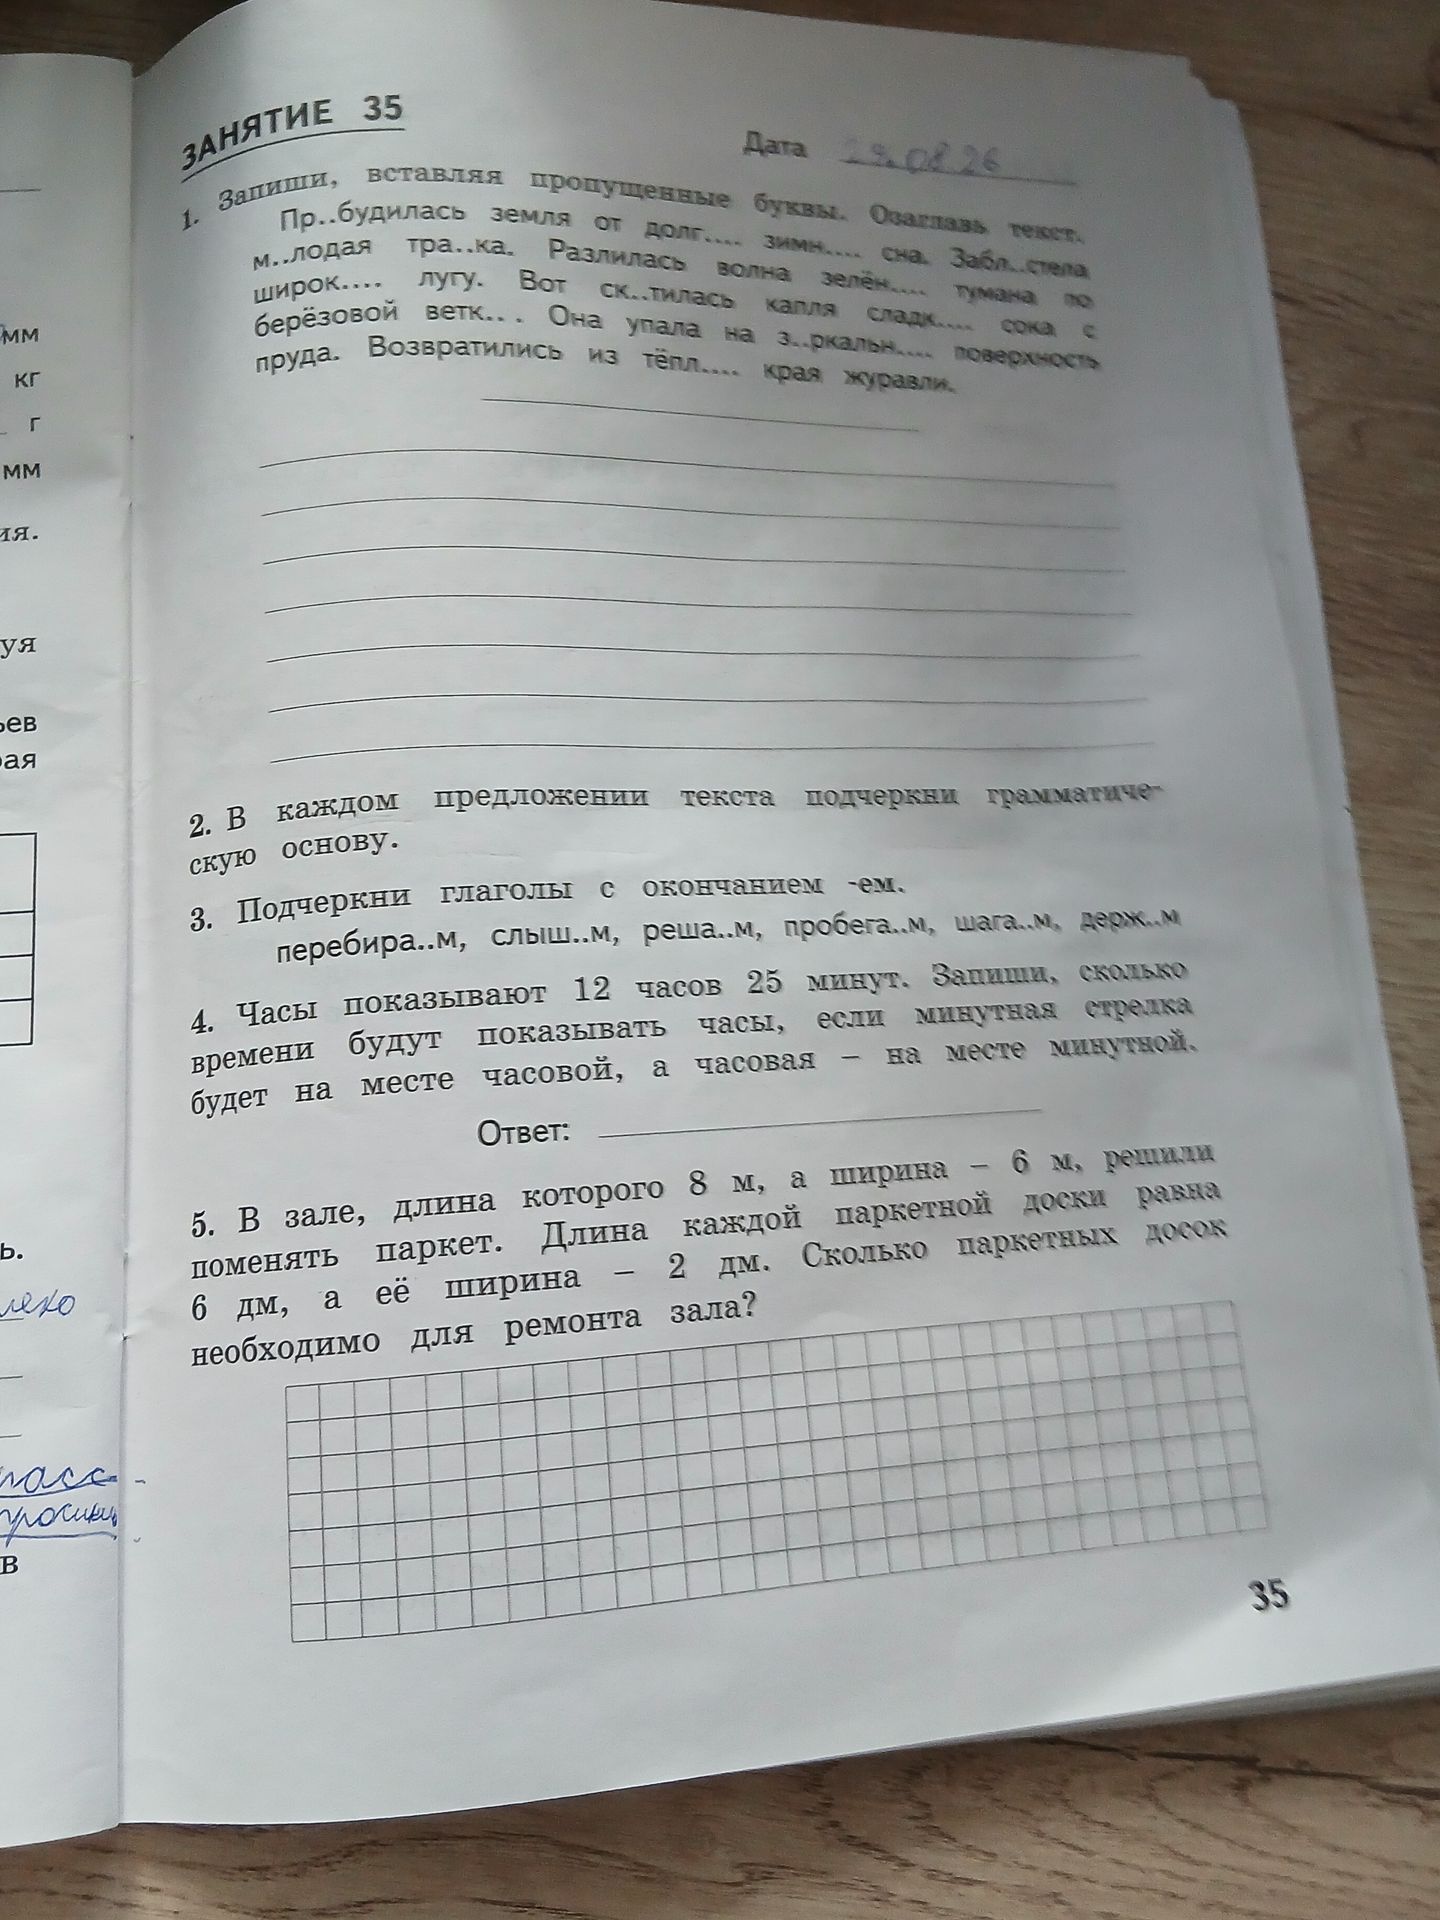 мм
кг
г
мм
ия.
уя
ьев
рая
ь.
леко
в
ЗАНЯТИЕ 35
Дата 29.08.26
1. Запиши, вставляя пропущенные буквы. Озаглавь текст.
Пр..будилась земля от долг.... зимн.... сна. Забл..стела
м..лодая тра..ка. Разлилась волна зелён.... тумана по
широк.... лугу. Вот ск..тилась капля сладк.... сока с
берёзовой ветк... . Она упала на з..ркальн.... поверхность
пруда. Возвратились из тёпл.... края журавли.
2. В каждом предложении текста подчеркни грамматиче-
скую основу.
3. Подчеркни глаголы с окончанием -ем.
перебира..м, слыш..м, реша..м, пробега..м, шага..м, держ..м
4. Часы показывают 12 часов 25 минут. Запиши, сколько
времени будут показывать часы, если минутная стрелка
будет на месте часовой, а часовая – на месте минутной.
Ответ:
5. В зале, длина которого 8 м, а ширина – 6 м, решили
поменять паркет. Длина каждой паркетной доски равна
6 дм, а её ширина – 2 дм. Сколько паркетных досок
необходимо для ремонта зала?
35